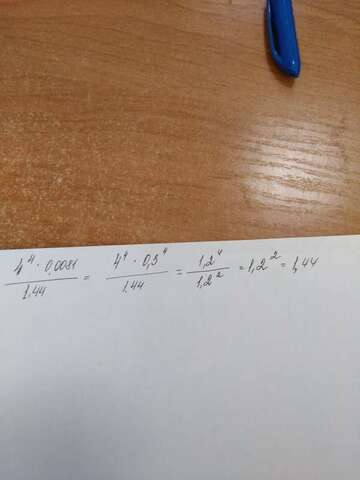 4^4 · 0,0081 / 1.44 = 4^4 · 0,3^4 / 1.44 = 1,2^4 / 1,2^2 = 1,2^2 = 1,44